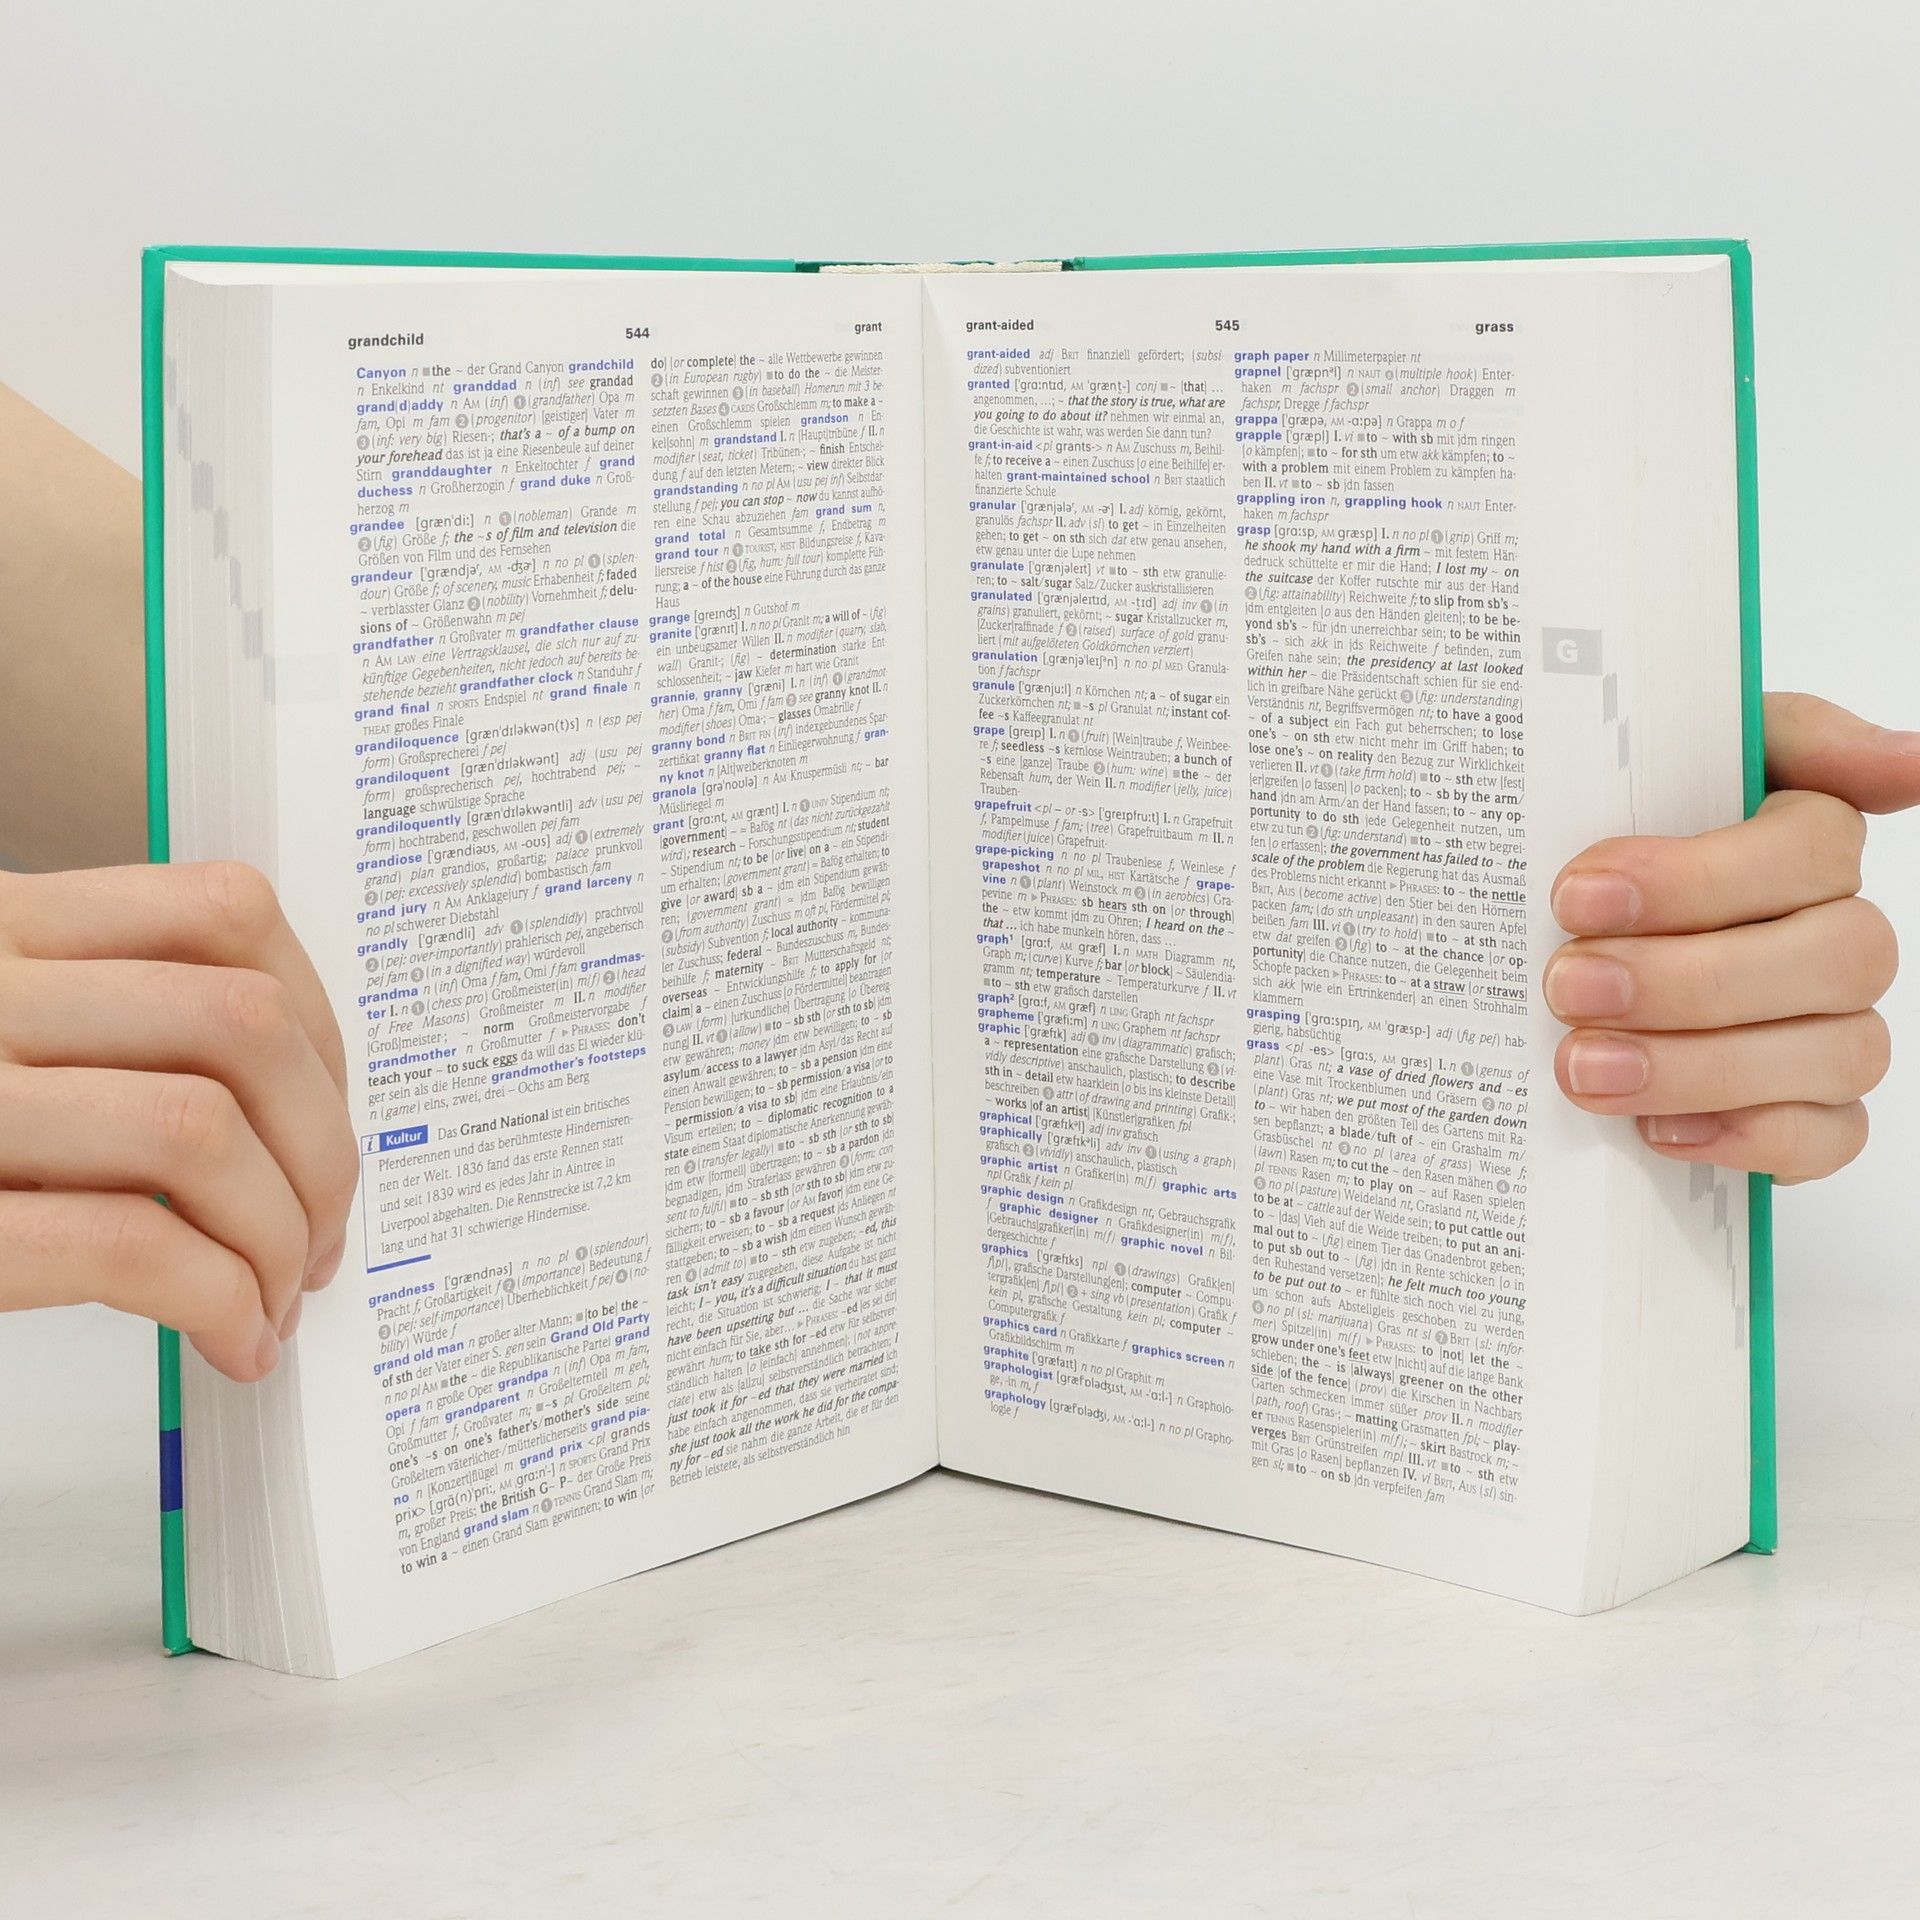 grandchild
544
grant
Canyon n ■the ~ der Grand Canyon grandchild
n Enkelkind nt granddad n (inf) see grandad
grand|d|addy n AM (inf) ❶(grandfather) Opa m
fam, Opi m fam ❷(progenitor) [geistiger] Vater m
❸(inf: very big) Riesen-; that's a ~ of a bump on
your forehead das ist ja eine Riesenbeule auf deiner
Stirn granddaughter n Enkeltochter f grand
duchess n Großherzogin f grand duke n Groß-
herzog m
grandee [grænˈdi:] n ❶(nobleman) Grande m
❷(fig) Größe f; the ~s of film and television die
Größen von Film und des Fernsehen
grandeur [ˈgrændjəʳ, AM -dʒɚ] n no pl ❶(splen-
dour) Größe f; of scenery, music Erhabenheit f; faded
~ verblasster Glanz ❷(nobility) Vornehmheit f; delu-
sions of ~ Größenwahn m pej
grandfather n Großvater m grandfather clause
n AM LAW eine Vertragsklausel, die sich nur auf zu-
künftige Gegebenheiten, nicht jedoch auf bereits be-
stehende bezieht grandfather clock n Standuhr f
grand final n SPORTS Endspiel nt grand finale n
THEAT großes Finale
grandiloquence [grænˈdɪləkwən(t)s] n (esp pej
form) Großsprecherei f pej
grandiloquent [grænˈdɪləkwənt] adj (usu pej
form) großsprecherisch pej, hochtrabend pej; ~
language schwülstige Sprache
grandiloquently [grænˈdɪləkwəntli] adv (usu pej
form) hochtrabend, geschwollen pej fam
grandiose [ˈgrændiəʊs, AM -oʊs] adj ❶(extremely
grand) plan grandios, großartig; palace prunkvoll
❷(pej: excessively splendid) bombastisch fam
grand jury n AM Anklagejury f grand larceny n
no pl schwerer Diebstahl
grandly [ˈgrændli] adv ❶(splendidly) prachtvoll
❷(pej: over-importantly) prahlerisch pej, angeberisch
pej fam ❸(in a dignified way) würdevoll
grandma n (inf) Oma f fam, Omi f fam grandmas-
ter I. n ❶(chess pro) Großmeister(in) m(f) ❷(head
of Free Masons) Großmeister m II. n modifier
[Groß]meister-; ~ norm Großmeistervorgabe f
grandmother n Großmutter f ▶PHRASES: don't
teach your ~ to suck eggs da will das Ei wieder klü-
ger sein als die Henne grandmother's footsteps
n (game) eins, zwei, drei – Ochs am Berg
i Kultur Das Grand National ist ein britisches
Pferderennen und das berühmteste Hindernisren-
nen der Welt. 1836 fand das erste Rennen statt
und seit 1839 wird es jedes Jahr in Aintree in
Liverpool abgehalten. Die Rennstrecke ist 7,2 km
lang und hat 31 schwierige Hindernisse.
grandness [ˈgrændnəs] n no pl ❶(splendour)
Pracht f, Großartigkeit f ❷(importance) Bedeutung f
❸(pej: self-importance) Überheblichkeit f pej ❹(no-
bility) Würde f
grand old man n großer alter Mann; ■[to be] the ~
of sth der Vater einer S. gen sein Grand Old Party
n no pl AM ■the ~ die Republikanische Partei grand
opera n große Oper grandpa n (inf) Opa m fam,
Opi f fam grandparent n Großelternteil m geh,
Großmutter f, Großvater m; ■~s pl Großeltern pl;
one's ~s on one's father's/mother's side seine
Großeltern väterlicher-/mütterlicherseits grand pia-
no n [Konzert]flügel m grand prix <pl grands
prix> [ˌgrɑ̃(n)ˈpri:, AM ˌgrɑ:nˈ-] n SPORTS Grand Prix
m, großer Preis; the British G~ P~ der Große Preis
von England grand slam n ❶TENNIS Grand Slam m;
to win a ~ einen Grand Slam gewinnen; to win [or
do] [or complete] the ~ alle Wettbewerbe gewinnen
❷(in European rugby) ■to do the ~ die Meister-
schaft gewinnen ❸(in baseball) Homerun mit 3 be-
setzten Bases ❹CARDS Großschlemm m; to make a ~
einen Großschlemm spielen grandson n En-
kel[sohn] m grandstand I. n [Haupt]tribüne f II. n
modifier (seat, ticket) Tribünen-; ~ finish Entschei-
dung f auf den letzten Metern; ~ view direkter Blick
grandstanding n no pl AM (usu pej inf) Selbstdar-
stellung f pej; you can stop ~ now du kannst aufhö-
ren eine Schau abzuziehen fam grand sum n,
grand total n Gesamtsumme f, Endbetrag m
grand tour n ❶TOURIST, HIST Bildungsreise f, Kava-
liersreise f hist ❷(fig, hum: full tour) komplette Füh-
rung; a ~ of the house eine Führung durch das ganze
Haus
grange [greɪndʒ] n Gutshof m
granite [ˈgrænɪt] I. n no pl Granit m; a will of ~ (fig)
ein unbeugsamer Willen II. n modifier (quarry, slab,
wall) Granit-; (fig) ~ determination starke Ent-
schlossenheit; ~ jaw Kiefer m hart wie Granit
grannie, granny [ˈgræni] I. n (inf) ❶(grandmot-
her) Oma f fam, Omi f fam ❷see granny knot II. n
modifier (shoes) Oma-; ~ glasses Omabrille f
granny bond n BRIT FIN (inf) indexgebundenes Spar-
zertifikat granny flat n Einliegerwohnung f gran-
ny knot n [Alt]weiberknoten m
granola [grəˈnoʊlə] n AM Knuspermüsli nt; ~ bar
Müsliriegel m
grant [grɑ:nt, AM grænt] I. n ❶UNIV Stipendium nt;
[government] ~ ≈ Bafög nt (das nicht zurückgezahlt
wird); research ~ Forschungsstipendium nt; student
~ Stipendium nt; to be [or live] on a ~ ein Stipendi-
um erhalten; (government grant) ≈ Bafög erhalten; to
give [or award] sb a ~ jdm ein Stipendium gewäh-
ren; (government grant) ≈ jdm Bafög bewilligen
❷(from authority) Zuschuss m oft pl, Fördermittel pl;
(subsidy) Subvention f; local authority ~ kommuna-
ler Zuschuss; federal ~ Bundeszuschuss m, Bundes-
beihilfe f; maternity ~ BRIT Mutterschaftsgeld nt;
overseas ~ Entwicklungshilfe f; to apply for [or
claim] a ~ einen Zuschuss [o Fördermittel] beantragen
❸LAW (form) [urkundliche] Übertragung [o Übereig-
nung] II. vt ❶(allow) ■to ~ sb sth [or sth to sb] jdm
etw gewähren; money jdm etw bewilligen; to ~ sb
asylum/access to a lawyer jdm Asyl/das Recht auf
einen Anwalt gewähren; to ~ sb a pension jdm eine
Pension bewilligen; to ~ sb permission/a visa [or to
~ permission/a visa to sb] jdm eine Erlaubnis/ein
Visum erteilen; to ~ diplomatic recognition to a
state einem Staat diplomatische Anerkennung gewäh-
ren ❷(transfer legally) ■to ~ sb sth [or sth to sb]
jdm etw [formell] übertragen; to ~ sb a pardon jdn
begnadigen, jdm Straferlass gewähren ❸(form: con-
sent to fulfil) ■to ~ sb sth [or sth to sb] jdm etw zu-
sichern; to ~ sb a favour [or AM favor] jdm eine Ge-
fälligkeit erweisen; to ~ sb a request jds Anliegen nt
stattgeben; to ~ sb a wish jdm einen Wunsch gewäh-
ren ❹(admit to) ■to ~ sth etw zugeben; ~ed, this
task isn't easy zugegeben, diese Aufgabe ist nicht
leicht; I ~ you, it's a difficult situation du hast ganz
recht, die Situation ist schwierig; I ~ that it must
have been upsetting but ... die Sache war sicher
nicht einfach für Sie, aber... ▶PHRASES: ~ed [es sei dir]
gewährt hum; to take sth for ~ed etw für selbstver-
ständlich halten [o [einfach] annehmen]; (not appre-
ciate) etw als [allzu] selbstverständlich betrachten; I
just took it for ~ed that they were married ich
habe einfach angenommen, dass sie verheiratet sind;
she just took all the work he did for the compa-
ny for ~ed sie nahm die ganze Arbeit, die er für den
Betrieb leistete, als selbstverständlich hin
grant-aided
545
grass
grant-aided adj BRIT finanziell gefördert; (subsi-
dized) subventioniert
granted [ˈgrɑ:ntɪd, AM ˈgrænt̬-] conj ■~ [that] ...
angenommen, ...; ~ that the story is true, what are
you going to do about it? nehmen wir einmal an,
die Geschichte ist wahr, was werden Sie dann tun?
grant-in-aid <pl grants-> n AM Zuschuss m, Beihil-
fe f; to receive a ~ einen Zuschuss [o eine Beihilfe] er-
halten grant-maintained school n BRIT staatlich
finanzierte Schule
granular [ˈgrænjələʳ, AM -ɚ] I. adj körnig, gekörnt,
granulös fachspr II. adv (sl) to get ~ in Einzelheiten
gehen; to get ~ on sth sich dat etw genau ansehen,
etw genau unter die Lupe nehmen
granulate [ˈgrænjəleɪt] vt ■to ~ sth etw granulie-
ren; to ~ salt/sugar Salz/Zucker auskristallisieren
granulated [ˈgrænjəleɪtɪd, AM -t̬ɪd] adj inv ❶(in
grains) granuliert, gekörnt; ~ sugar Kristallzucker m,
[Zucker]raffinade f ❷(raised) surface of gold granu-
liert (mit aufgelöteten Goldkörnchen verziert)
granulation [ˌgrænjəˈleɪʃᵊn] n no pl MED Granula-
tion f fachspr
granule [ˈgrænju:l] n Körnchen nt; a ~ of sugar ein
Zuckerkörnchen nt; ■~s pl Granulat nt; instant cof-
fee ~s Kaffeegranulat nt
grape [greɪp] I. n ❶(fruit) [Wein]traube f, Weinbee-
re f; seedless ~s kernlose Weintrauben; a bunch of
~s eine [ganze] Traube ❷(hum: wine) ■the ~ der
Rebensaft hum, der Wein II. n modifier (jelly, juice)
Trauben-
grapefruit <pl – or -s> [ˈgreɪpfru:t] I. n Grapefruit
f, Pampelmuse f fam; (tree) Grapefruitbaum m II. n
modifier (juice) Grapefruit-
grape-picking n no pl Traubenlese f, Weinlese f
grapeshot n no pl MIL, HIST Kartätsche f grape-
vine n ❶(plant) Weinstock m ❷(in aerobics) Gra-
pevine m ▶PHRASES: sb hears sth on [or through]
the ~ etw kommt jdm zu Ohren; I heard on the ~
that ... ich habe munkeln hören, dass ...
graph¹ [grɑ:f, AM græf] I. n MATH Diagramm nt,
Graph m; (curve) Kurve f; bar [or block] ~ Säulendia-
gramm nt; temperature ~ Temperaturkurve f II. vt
■to ~ sth etw grafisch darstellen
graph² [grɑ:f, AM græf] n LING Graph nt fachspr
grapheme [ˈgræfi:m] n LING Graphem nt fachspr
graphic [ˈgræfɪk] adj ❶inv (diagrammatic) grafisch;
a ~ representation eine grafische Darstellung ❷(vi-
vidly descriptive) anschaulich, plastisch; to describe
sth in ~ detail etw haarklein [o bis ins kleinste Detail]
beschreiben ❸attr (of drawing and printing) Grafik-;
~ works [of an artist] [Künstler]grafiken fpl
graphical [ˈgræfɪkᵊl] adj inv grafisch
graphically [ˈgræfɪkᵊli] adv inv ❶(using a graph)
grafisch ❷(vividly) anschaulich, plastisch
graphic artist n Grafiker(in) m(f) graphic arts
npl Grafik f kein pl
graphic design n Grafikdesign nt, Gebrauchsgrafik
f graphic designer n Grafikdesigner(in) m(f),
[Gebrauchs]grafiker(in) m(f) graphic novel n Bil-
dergeschichte f
graphics [ˈgræfɪks] npl ❶(drawings) Grafik[en]
f[pl], grafische Darstellung[en]; computer ~ Compu-
tergrafik[en] f[pl] ❷+ sing vb (presentation) Grafik f
kein pl, grafische Gestaltung kein pl; computer ~
Computergrafik f
graphics card n Grafikkarte f graphics screen n
Grafikbildschirm m
graphite [ˈgræfaɪt] n no pl Graphit m
graphologist [græfˈɒlədʒɪst, AM -ˈɑ:l-] n Grapholo-
ge, -in m, f
graphology [græfˈɒlədʒi, AM -ˈɑ:l-] n no pl Grapho-
logie f
graph paper n Millimeterpapier nt
grapnel [ˈgræpnᵊl] n NAUT ❶(multiple hook) Enter-
haken m fachspr ❷(small anchor) Draggen m
fachspr, Dregge f fachspr
grappa [ˈgræpə, AM -ɑ:pə] n Grappa m o f
grapple [ˈgræpl] I. vi ■to ~ with sb mit jdm ringen
[o kämpfen]; ■to ~ for sth um etw akk kämpfen; to ~
with a problem mit einem Problem zu kämpfen ha-
ben II. vt ■to ~ sb jdn fassen
grappling iron n, grappling hook n NAUT Enter-
haken m fachspr
grasp [grɑ:sp, AM græsp] I. n no pl ❶(grip) Griff m;
he shook my hand with a firm ~ mit festem Hän-
dedruck schüttelte er mir die Hand; I lost my ~ on
the suitcase der Koffer rutschte mir aus der Hand
❷(fig: attainability) Reichweite f; to slip from sb's ~
jdm entgleiten [o aus den Händen gleiten]; to be be-
yond sb's ~ für jdn unerreichbar sein; to be within
sb's ~ sich akk in jds Reichweite f befinden, zum
Greifen nahe sein; the presidency at last looked
within her ~ die Präsidentschaft schien für sie end-
lich in greifbare Nähe gerückt ❸(fig: understanding)
Verständnis nt, Begriffsvermögen nt; to have a good
~ of a subject ein Fach gut beherrschen; to lose
one's ~ on sth etw nicht mehr im Griff haben; to
lose one's ~ on reality den Bezug zur Wirklichkeit
verlieren II. vt ❶(take firm hold) ■to ~ sth etw [fest]
[er]greifen [o fassen] [o packen]; to ~ sb by the arm/
hand jdn am Arm/an der Hand fassen; to ~ any op-
portunity to do sth jede Gelegenheit nutzen, um
etw zu tun ❷(fig: understand) ■to ~ sth etw begrei-
fen [o erfassen]; the government has failed to ~ the
scale of the problem die Regierung hat das Ausmaß
des Problems nicht erkannt ▶PHRASES: to ~ the nettle
BRIT, AUS (become active) den Stier bei den Hörnern
packen fam; (do sth unpleasant) in den sauren Apfel
beißen fam III. vi ❶(try to hold) ■to ~ at sth nach
etw dat greifen ❷(fig) to ~ at the chance [or op-
portunity] die Chance nutzen, die Gelegenheit beim
Schopfe packen ▶PHRASES: to ~ at a straw [or straws]
sich akk [wie ein Ertrinkender] an einen Strohhalm
klammern
grasping [ˈgrɑ:spɪŋ, AM ˈgræsp-] adj (fig pej) hab-
gierig, habsüchtig
grass <pl -es> [grɑ:s, AM græs] I. n ❶(genus of
plant) Gras nt; a vase of dried flowers and ~es
eine Vase mit Trockenblumen und Gräsern ❷no pl
(plant) Gras nt; we put most of the garden down
to ~ wir haben den größten Teil des Gartens mit Ra-
sen bepflanzt; a blade/tuft of ~ ein Grashalm m/
Grasbüschel nt ❸no pl (area of grass) Wiese f;
(lawn) Rasen m; to cut the ~ den Rasen mähen ❹no
pl TENNIS Rasen m; to play on ~ auf Rasen spielen
❺no pl (pasture) Weideland nt, Grasland nt, Weide f;
to be at ~ cattle auf der Weide sein; to put cattle out
to ~ [das] Vieh auf die Weide treiben; to put an ani-
mal out to ~ (fig) einem Tier das Gnadenbrot geben;
to put sb out to ~ (fig) jdn in Rente schicken [o in
den Ruhestand versetzen]; he felt much too young
to be put out to ~ er fühlte sich noch viel zu jung,
um schon aufs Abstellgleis geschoben zu werden
❻no pl (sl: marijuana) Gras nt sl ❼BRIT (sl: infor-
mer) Spitzel(in) m(f) ▶PHRASES: to [not] let the ~
grow under one's feet etw [nicht] auf die lange Bank
schieben; the ~ is [always] greener on the other
side [of the fence] (prov) die Kirschen in Nachbars
Garten schmecken immer süßer prov II. n modifier
(path, roof) Gras-; ~ matting Grasmatten fpl; ~ play-
er TENNIS Rasenspieler m(f); ~ skirt Bastrock m; ~
verges BRIT Grünstreifen mpl III. vt ■to ~ sth etw
mit Gras [o Rasen] bepflanzen IV. vi BRIT, AUS (sl) sin-
gen sl; ■to ~ on sb jdn verpfeifen fam
G